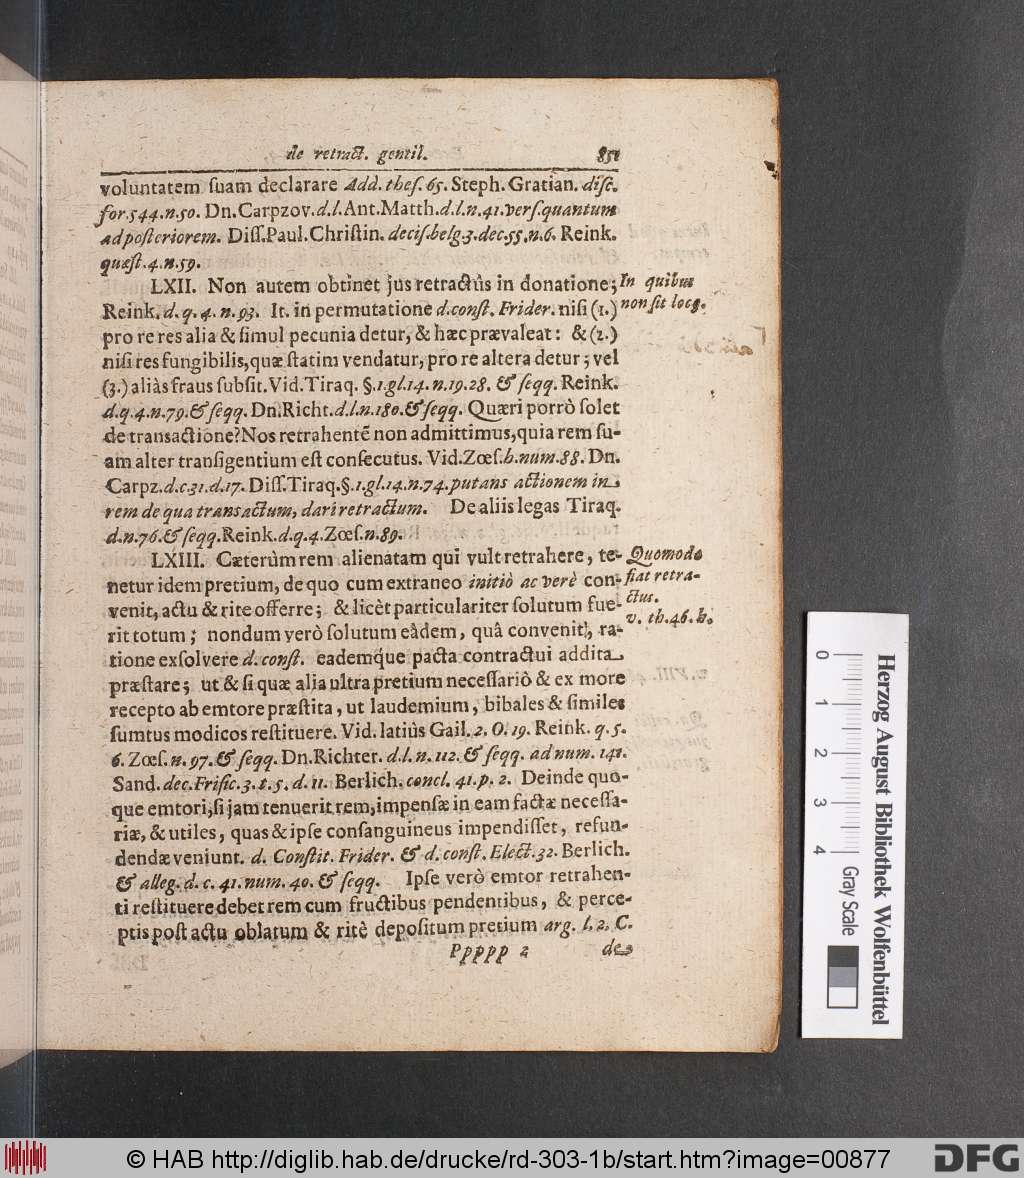 de retract. gentil. 851
voluntatem ſuam declarare Add. theſ. 65. Steph. Gratian. diſc.
for. 544. n. 50. Dn. Carpzov. d. l. Ant. Matth. d. l. n. 41. verſ. quantum
ad poſteriorem. Diſſ. Paul. Chriſtin. deciſ. belg. 3. dec. 55. n. 6. Reink.
quæſt. 4. n. 59.
LXII. Non autem obtinet jus retractûs in donatione;
In quibus
Reink. d. q. 4. n. 93. It. in permutatione d. conſt. Frider. niſi (1.)
non ſit locꝰ.
pro re res alia & ſimul pecunia detur, & hæc prævaleat: & (2.)
niſi res fungibilis, quæ ſtatim vendatur, pro re altera detur; vel
(3.) aliàs fraus ſubſit. Vid. Tiraq. §. 1. gl. 14. n. 19. 28. & ſeqq. Reink.
d. q. 4. n. 79. & ſeqq. Dn. Richt. d. l. n. 180. & ſeqq. Quæri porrò ſolet
de transactione? Nos retrahentẽ non admittimus, quia rem ſu-
am alter tranſigentium eſt conſecutus. Vid. Zœſ. h. num. 88. Dn.
Carpz. d. c. 31. d. 17. Diſſ. Tiraq. §. 1. gl. 14. n. 74. putans actionem in
rem de qua transactum, dari retractum. De aliis legas Tiraq.
d. n. 76. & ſeqq. Reink. d. q. 4. Zœſ. n. 89.
LXIII. Cæterùm rem alienatam qui vult retrahere, te-
Quomodo
netur idem pretium, de quo cum extraneo initiò ac verè con-
fiat retra-
ctus.
venit, actu & rite offerre; & licèt particulariter ſolutum fue-
v. th. 46. h.
rit totum; nondum verò ſolutum eâdem, quâ convenit, ra-
tione exſolvere d. conſt. eademq́ue pacta contractui addita
præſtare; ut & ſi quæ alia ultra pretium neceſſariò & ex more
recepto ab emtore præſtita, ut laudemium, bibales & ſimiles
ſumtus modicos reſtituere. Vid. latiùs Gail. 2. O. 19. Reink. q. 5.
6. Zœſ. n. 97. & ſeqq. Dn. Richter. d. l. n. 112. & ſeqq. ad num. 141.
Sand. dec. Friſic. 3. t. 5. d. 11. Berlich. concl. 41. p. 2. Deinde quo-
que emtori, ſi jam tenuerit rem, impenſæ in eam factæ neceſſa-
riæ, & utiles, quas & ipſe conſanguineus impendiſſet, refun-
dendæ veniunt. d. Conſtit. Frider. & d. conſt. Elect. 32. Berlich.
& alleg. d. c. 41. num. 40. & ſeqq. Ipſe verò emtor retrahen-
ti reſtituere debet rem cum fructibus pendentibus, & perce-
ptis poſt actu oblatum & ritè depoſitum pretium arg. l. 2. C.
Ppppp 2 de
0 1 2 3 4
Herzog August Bibliothek Wolfenbüttel
Gray Scale
© HAB http://diglib.hab.de/drucke/rd-303-1b/start.htm?image=00877
DFG